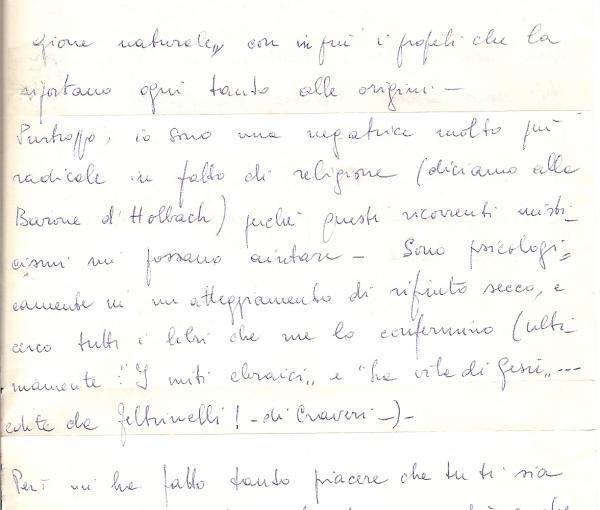 gione naturale„ con in più i profeti che la
riportano ogni tanto alle origini. —
Purtroppo, io sono una negatrice molto più
radicale in fatto di religione (diciamo alla
Barone d'Holbach) perché questi ricorrenti misti-
cismi mi possano aiutare — Sono psicologi=
camente in un atteggiamento di rifiuto secco, e
cerco tutti i libri che me lo confermino (ulti
mamente: "I miti ebraici„ e "La vita di Gesù„ ---
edita da Feltrinelli! - di Craveri -) -
Però mi ha fatto tanto piacere che tu ti sia